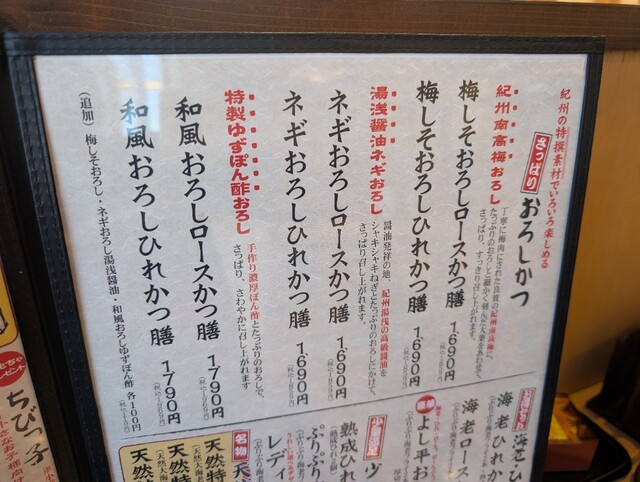 紀州の特撰素材でいろいろ楽しめる
さっぱり おろしかつ
紀州南高梅おろし
丁寧に梅肉にされた良質の紀州南高梅に、
たっぷりのおろしと細かく刻んだ大葉をあわせて、
さっぱり、すっきり召し上がれます。
梅しそおろしロースかつ膳 1,690円
梅しそおろしひれかつ膳 1,690円
湯浅醤油ネギおろし
醤油発祥の地、紀州湯浅の高級醤油を
シャキシャキねぎとたっぷりのおろしにかけて、
さっぱり召し上がれます。
ネギおろしロースかつ膳 1,690円
ネギおろしひれかつ膳 1,690円
特製ゆずぽん酢おろし
手作り濃厚ぽん酢とたっぷりのおろしで、
さっぱり、さわやかに召し上がれます
和風おろしロースかつ膳 1,790円
和風おろしひれかつ膳 1,790円
(追加) 梅しそおろし・ネギおろし湯浅醤油・和風おろしゆずぽん酢 各100円
海老・ひ
海老ひれか
海老ロース
よし平お
熟成ひれ
ぷりぷり
レディ
名物
天然
天然特
天然
ちびっ子